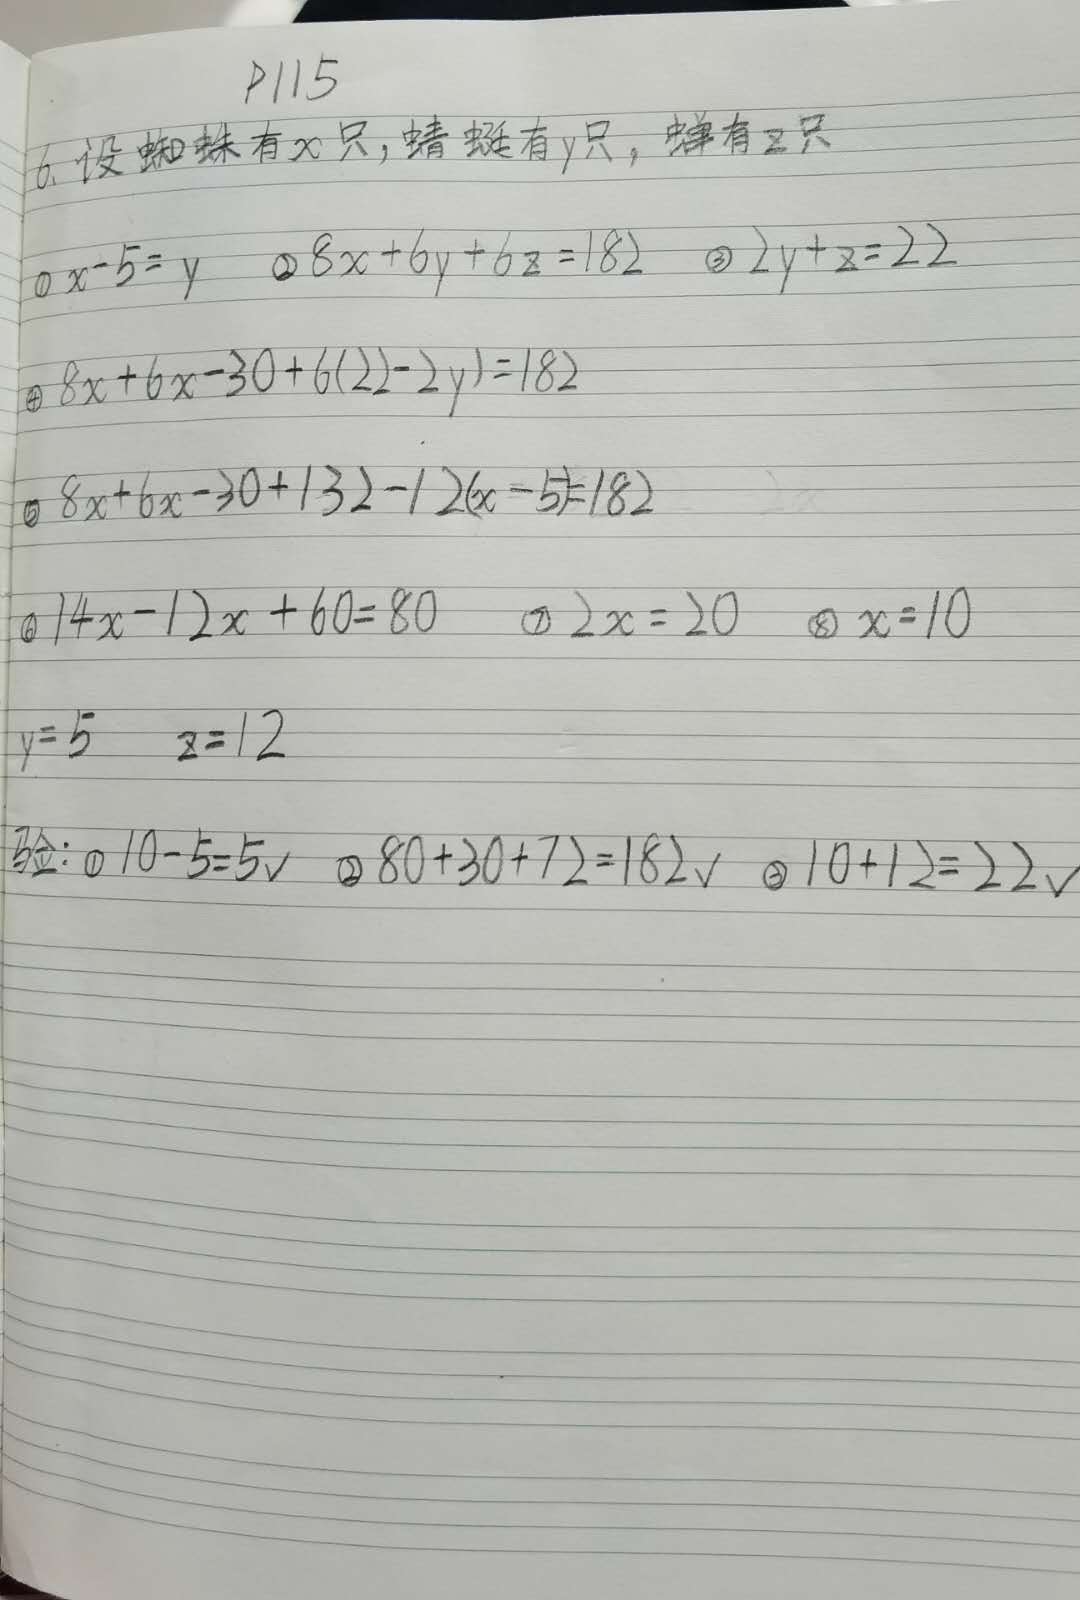 P115
6. 设蜘蛛有x只,蜻蜓有y只,蝉有z只
① x-5=y ② 8x+6y+6z=182 ③ 2y+z=22
④ 8x+6x-30+6(22-2y)=182
⑤ 8x+6x-30+132-12(x-5)=182
⑥ 14x-12x+60=80 ⑦ 2x=20 ⑧ x=10
y=5 z=12
验:① 10-5=5✓ ② 80+30+72=182✓ ③ 10+12=22✓